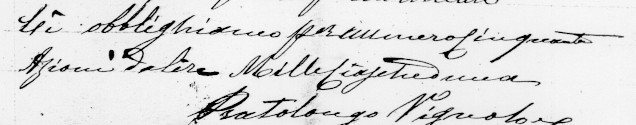 Ci obblighiamo per numero Cinquanta
Azioni da lire Mille Ciascheduna
Pratolongo Vignolo